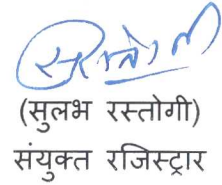 (सुलभ रस्तोगी)
संयुक्त रजिस्ट्रार